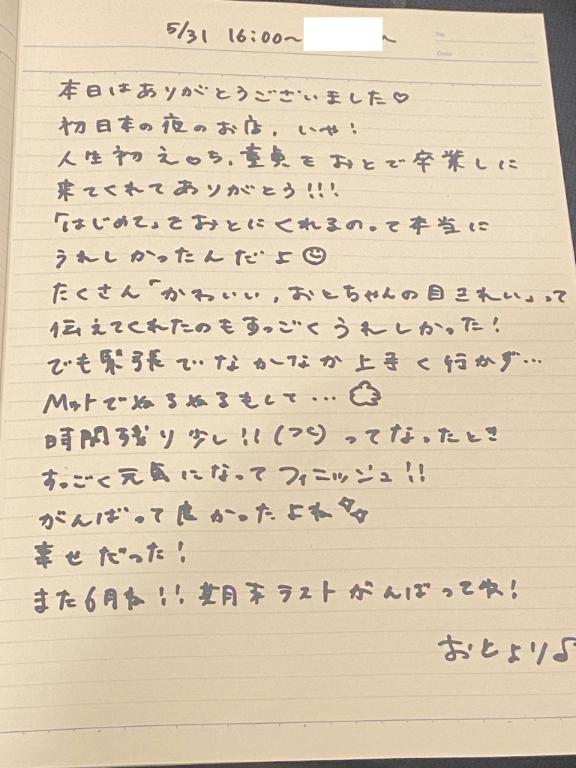 5/31 16:00～ ～
No.
Date
本日はありがとうございました♡
初日本の夜のお店，いや！
人生初えっち，童貞をおとで卒業しに
来てくれてありがとう!!!
「はじめて」をおとにくれるのって本当に
うれしかったんだよ☺
たくさん「かわいい，おとちゃんの目きれい」って
伝えてくれたのもすっごくうれしかった！
でも緊張でなかなか上手く行かず…
Mットでぬるぬるもして…
時間残り少し!!(つ<)ってなったとき
すっごく元気になってフィニッシュ!!
がんばって良かったよね
幸せだった！
また6月ね!!期末ラストがんばってね！
おとより♪